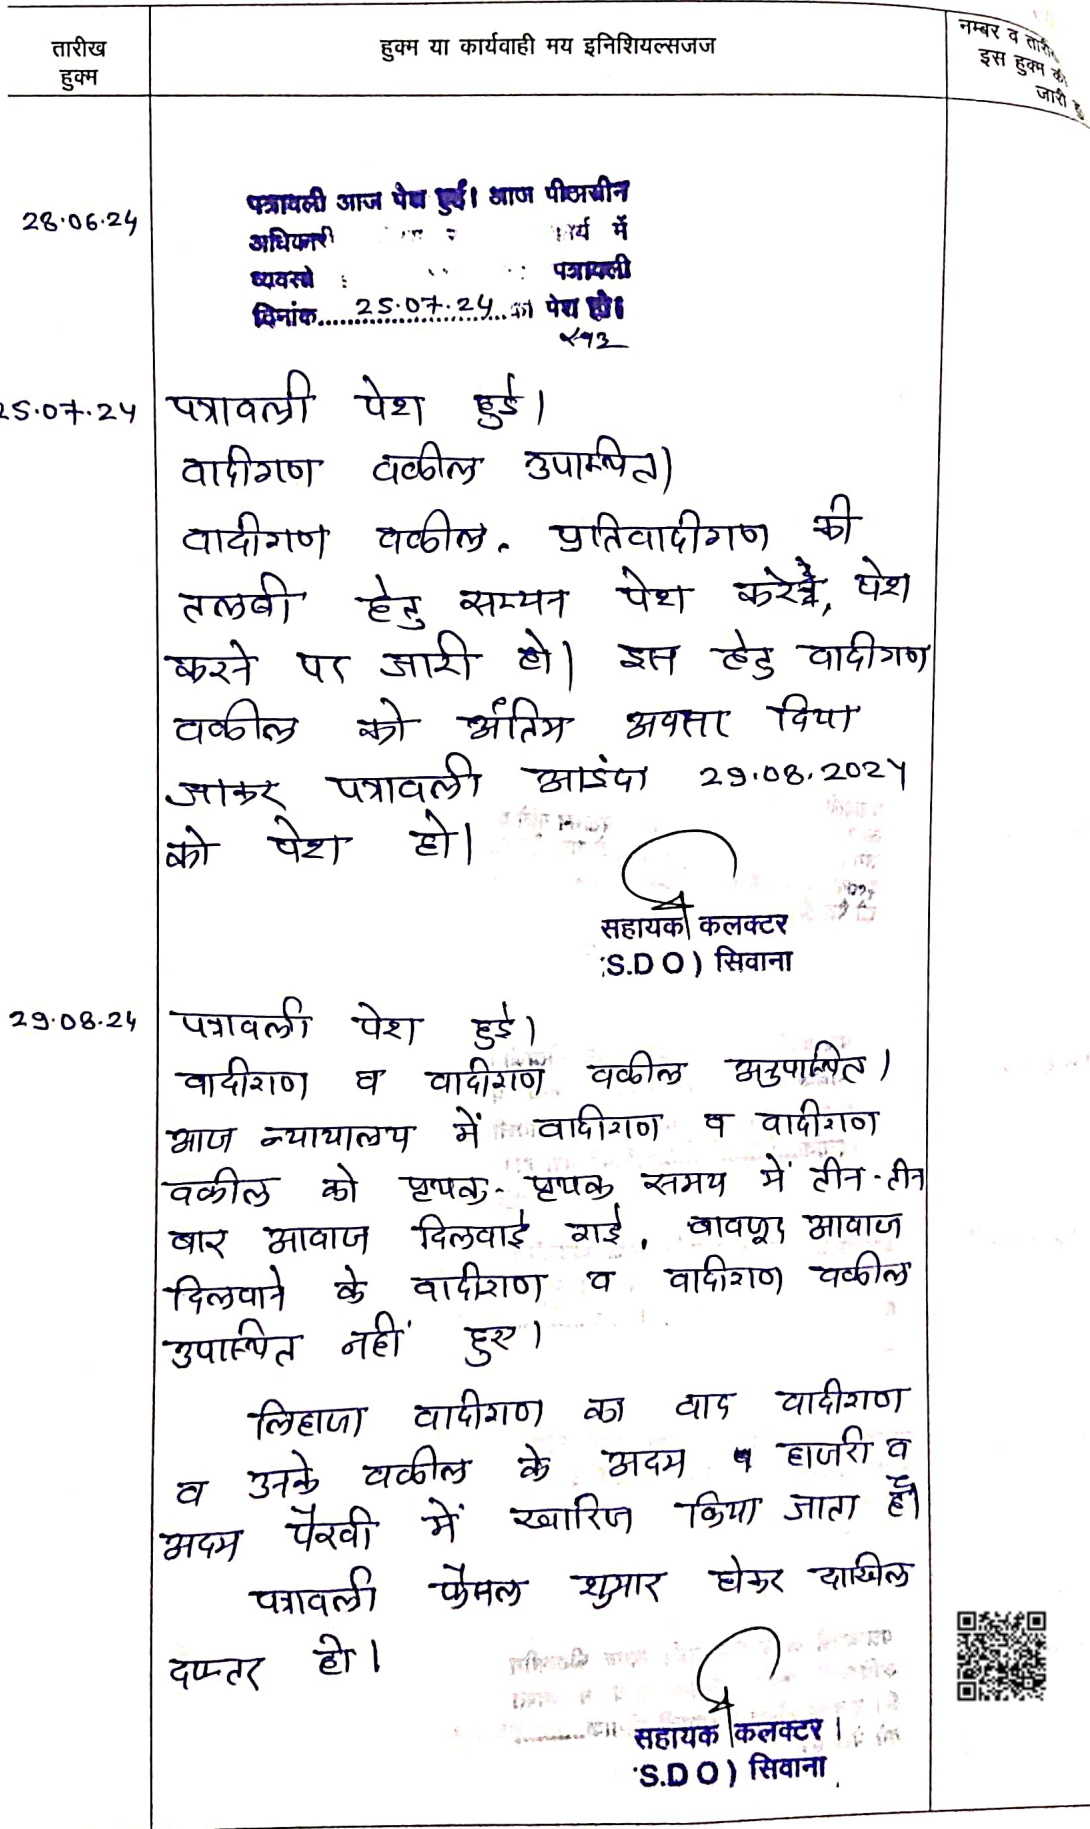 तारीख
हुक्म
हुक्म या कार्यवाही मय इनिशियल्सजज
नम्बर व तारीख
इस हुक्म की
जारी हु
28.06.24
पत्रावली आज पेश हुई। आज पीठासीन
अधिकारी कार्य में
व्यवस्थ पत्रावली
दिनांक....25.07.24...को पेश हो।
25.07.24
पत्रावली पेश हुई।
वादीगण वकील उपस्थित।
वादीगण वकील, प्रतिवादीगण की
तलबी हेतु सम्मन पेश करे, पेश
करने पर जारी हो। इस हेतु वादीगण
वकील को अंतिम अवसर दिया
जाकर पत्रावली आईंदा 29.08.2024
को पेश हो।
सहायक कलक्टर
(S.D O) सिवाना
29.08.24
पत्रावली पेश हुई।
वादीगण व वादीगण वकील अनुपस्थित।
आज न्यायालय में वादीगण व वादीगण
वकील को पृथक-पृथक समय में तीन-तीन
बार आवाज दिलवाई गई, बावजूद आवाज
दिलवाने के वादीगण व वादीगण वकील
उपस्थित नहीं हुए।
लिहाजा वादीगण का वाद वादीगण
व उनके वकील के अदम हाजरी व
अदम पैरवी में खारिज किया जाता है।
पत्रावली फैसल शुमार होकर दाखिल
दफ्तर हो।
सहायक कलक्टर
(S.D O) सिवाना